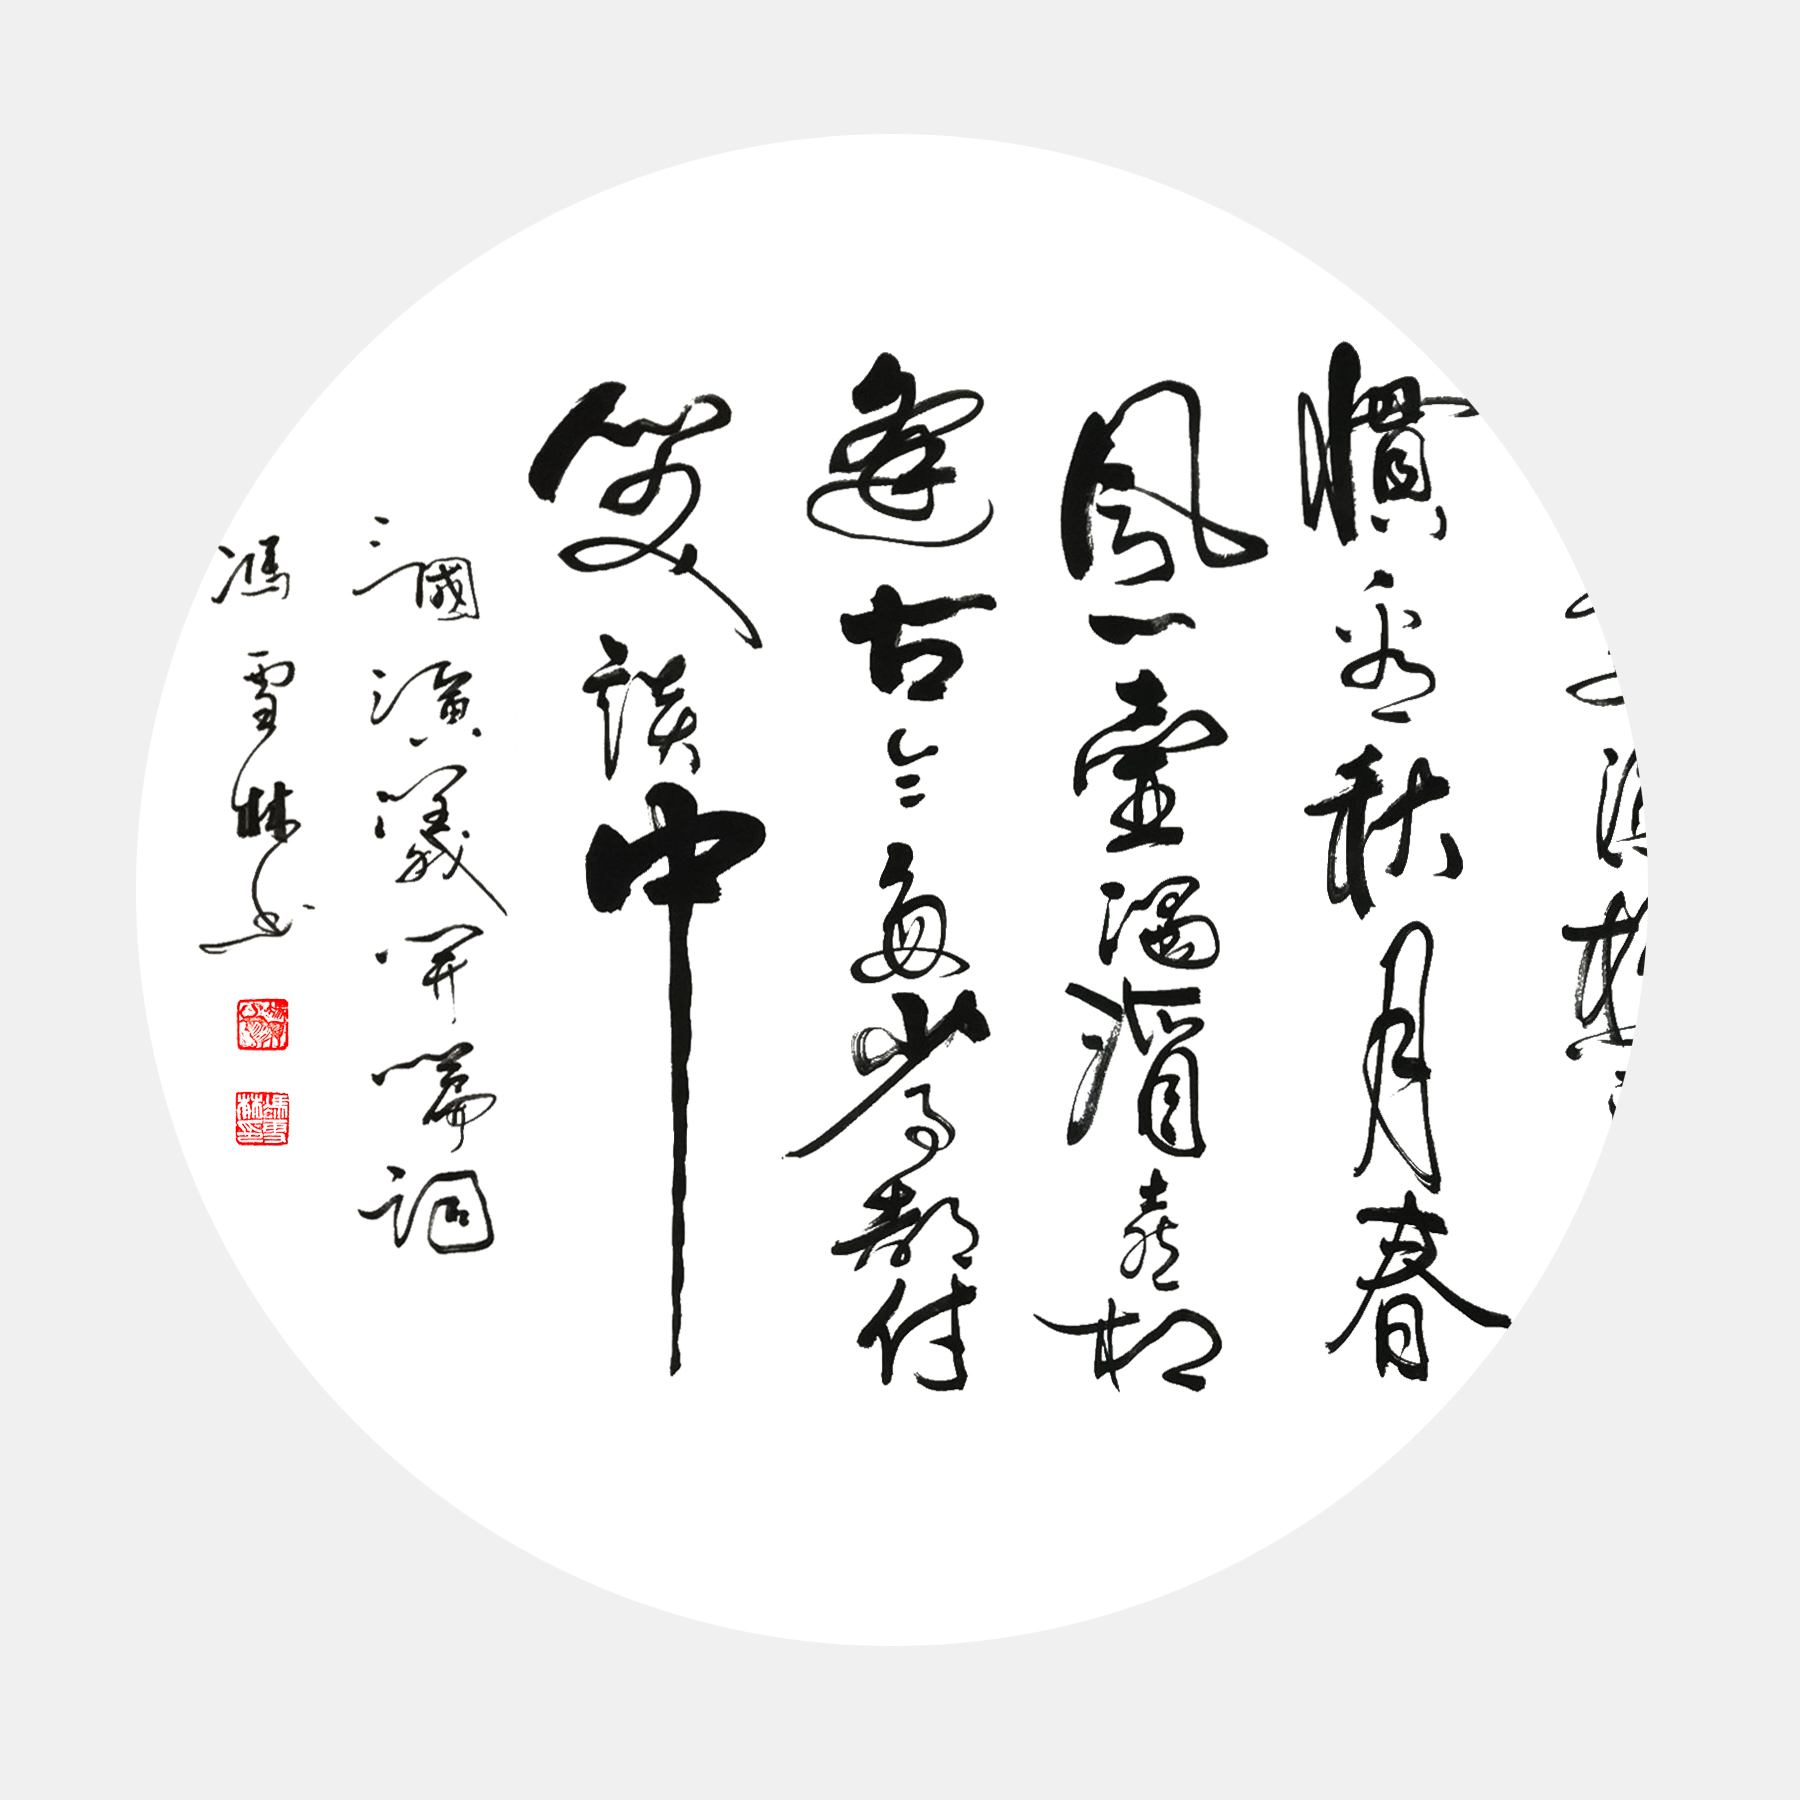 漁樵
慣看秋月春
風一壺濁酒喜相
逢古今多少事都付
笑談中
三國演義開篇詞
馮雪林书